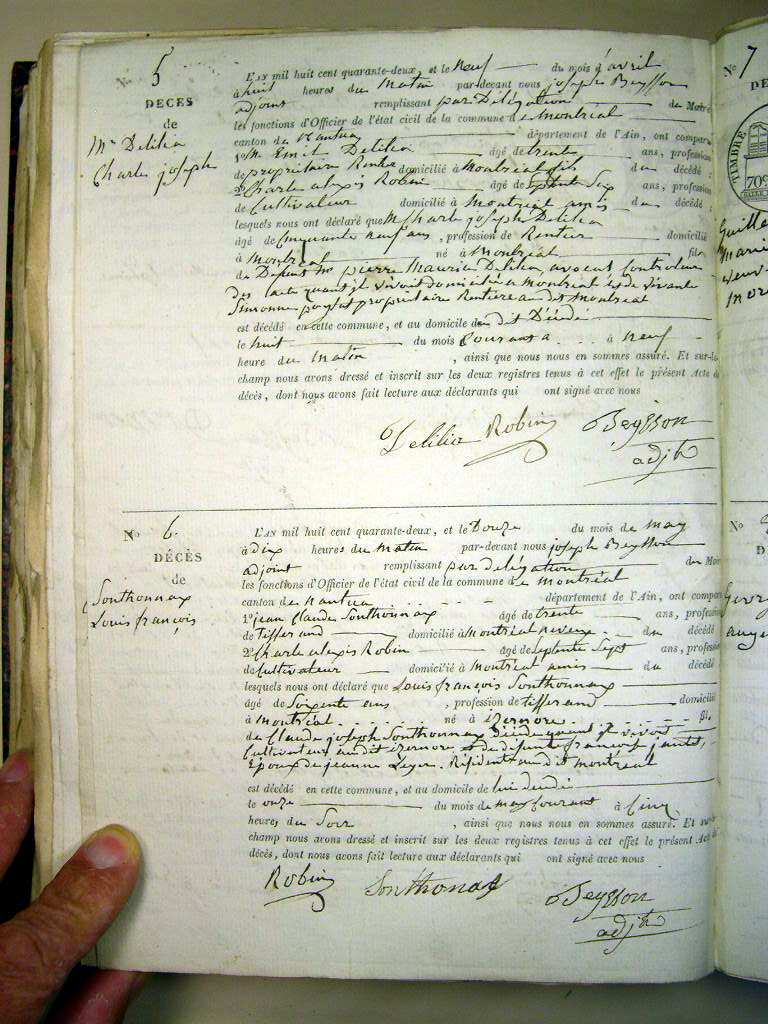 No 5
DECES
de
Mr Delilia
Charle joseph
L'AN mil huit cent quarante-deux, et le neuf du mois d'avril
à huit heures du Matin par-devant nous joseph Beysson
adjoint remplissant par Délégation du Maire
les fonctions d'Officier de l'état civil de la commune de Montréal
canton de Nantua département de l'Ain, ont comparu
1º Mr Emil Delilia âgé de trente ans, profession
de propriétaire Rentier domicilié à Montréal fils du décédé
2º Charle alexis Robin âgé de septente Six ans, profession
de Cultivateur domicilié à Montréal amis du décédé
lesquels nous ont déclaré que Mr Charle joseph Delilia
âgé de Cinquante neuf ans, profession de Rentier domicilié
à Montréal né à Montréal fils
de Défunt Mr pierre Maurice Delilia, avocat Controleur
des acte quant il vivoit domicilié a Montréal et de vivante
Simonne propriétaire Rentiere au dit Montréal
est décédé en cette commune, et au domicile du dit Décédé
le huit du mois Courant à neuf
heure du Matin, ainsi que nous nous en sommes assuré. Et sur-le-
champ nous avons dressé et inscrit sur les deux registres tenus à cet effet le présent Acte de
décès, dont nous avons fait lecture aux déclarants qui ont signé avec nous
Delilia Robin Beysson
adjt
No 6.
DÉCÈS
de
Sonthonnax
Louis françois
L'AN mil huit cent quarante-deux, et le Douze du mois de may
à dix heures du matin par-devant nous joseph Beysson
adjoint remplissant par délégation du Maire
les fonctions d'Officier de l'état civil de la commune de Montréal
canton de Nantua département de l'Ain, ont comparu
1º jean Claude Sonthonnax âgé de trente ans, profession
de tifferand domicilié à Montréal neveux du décédé
2º Charle alexis Robin âgé de Septente Sept ans, profession
de Cultivateur domicilié à Montréal amis du décédé
lesquels nous ont déclaré que Louis françois Sonthonnax
âgé de Soixente ans, profession de tifferand domicilié
à Montréal né à izernore fils
de Claude joseph Sonthonnax décédé quant il vivoit
Cultivateur au dit izernore et de défunte françoise
Epoux de jeanne Leger. Résident au dit Montréal
est décédé en cette commune, et au domicile de lui décédé
le onze du mois de may Courant à Cinq
heures du Soir, ainsi que nous nous en sommes assuré. Et sur-le-
champ nous avons dressé et inscrit sur les deux registres tenus à cet effet le présent Acte de
décès, dont nous avons fait lecture aux déclarants qui ont signé avec nous
Robin Sonthonax Beysson
adjt
No 7
TIMBRE
No